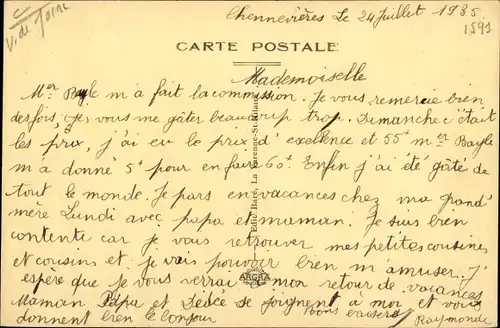 V. de Marne
Chennevières Le 24 Juillet 1935
1591
CARTE POSTALE
Mademoiselle
Mer Bayle m'a fait la commission. Je vous remercie bien
des fois, (Je) vous me gâter beaucoup trop. Dimanche c'était
les prix, j'ai eu le prix d'exellence et 55f mer Bayle
m'a donné 5f pour en faire 60f. Enfin j'ai été gâté de
tout le monde. Je pars en vacances chez ma grand'
mère Lundi avec papa et maman. Je suis bien
contente car je vais retrouver mes petites cousines
et cousins et je vais pouvoir bien m'amuser. J'
espère que je vous verrai à mon retour de vacances
Maman Papa et Dédée se joignent à moi et vous
donnent bien le bonjour
Bons baisers
Raymonde
Edit. Baré, La Varenne-St-Hilaire